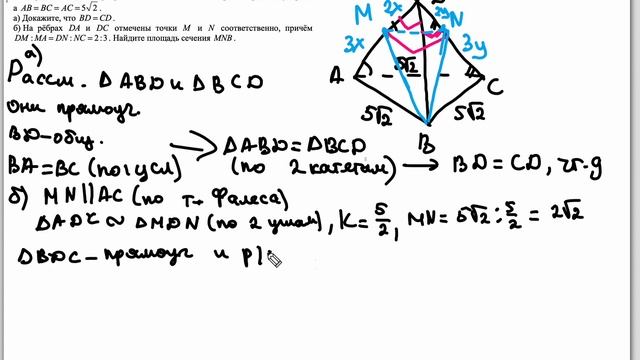 a AB = BC = AC = 5√2 .
а) Докажите, что BD = CD .
б) На рёбрах DA и DC отмечены точки M и N соответственно, причём
DM : MA = DN : NC = 2 : 3 . Найдите площадь сечения MNB .
M 2x 2y N
3x 3y
5√2
A C
5√2 5√2
B
а)
Рассм. △ABD и △BCD
Они прямоуг.
BD-общ.
BA=BC (по усл)
△ABD=△DBC
(по 2 катетам) → BD=CD, чт-д
б) MN||AC (по т. Фалеса)
△ADC ∾ △MDN (по 2 углам), K=5/2, MN=5√2:5/2=2√2
△BDC-прямоуг и р/